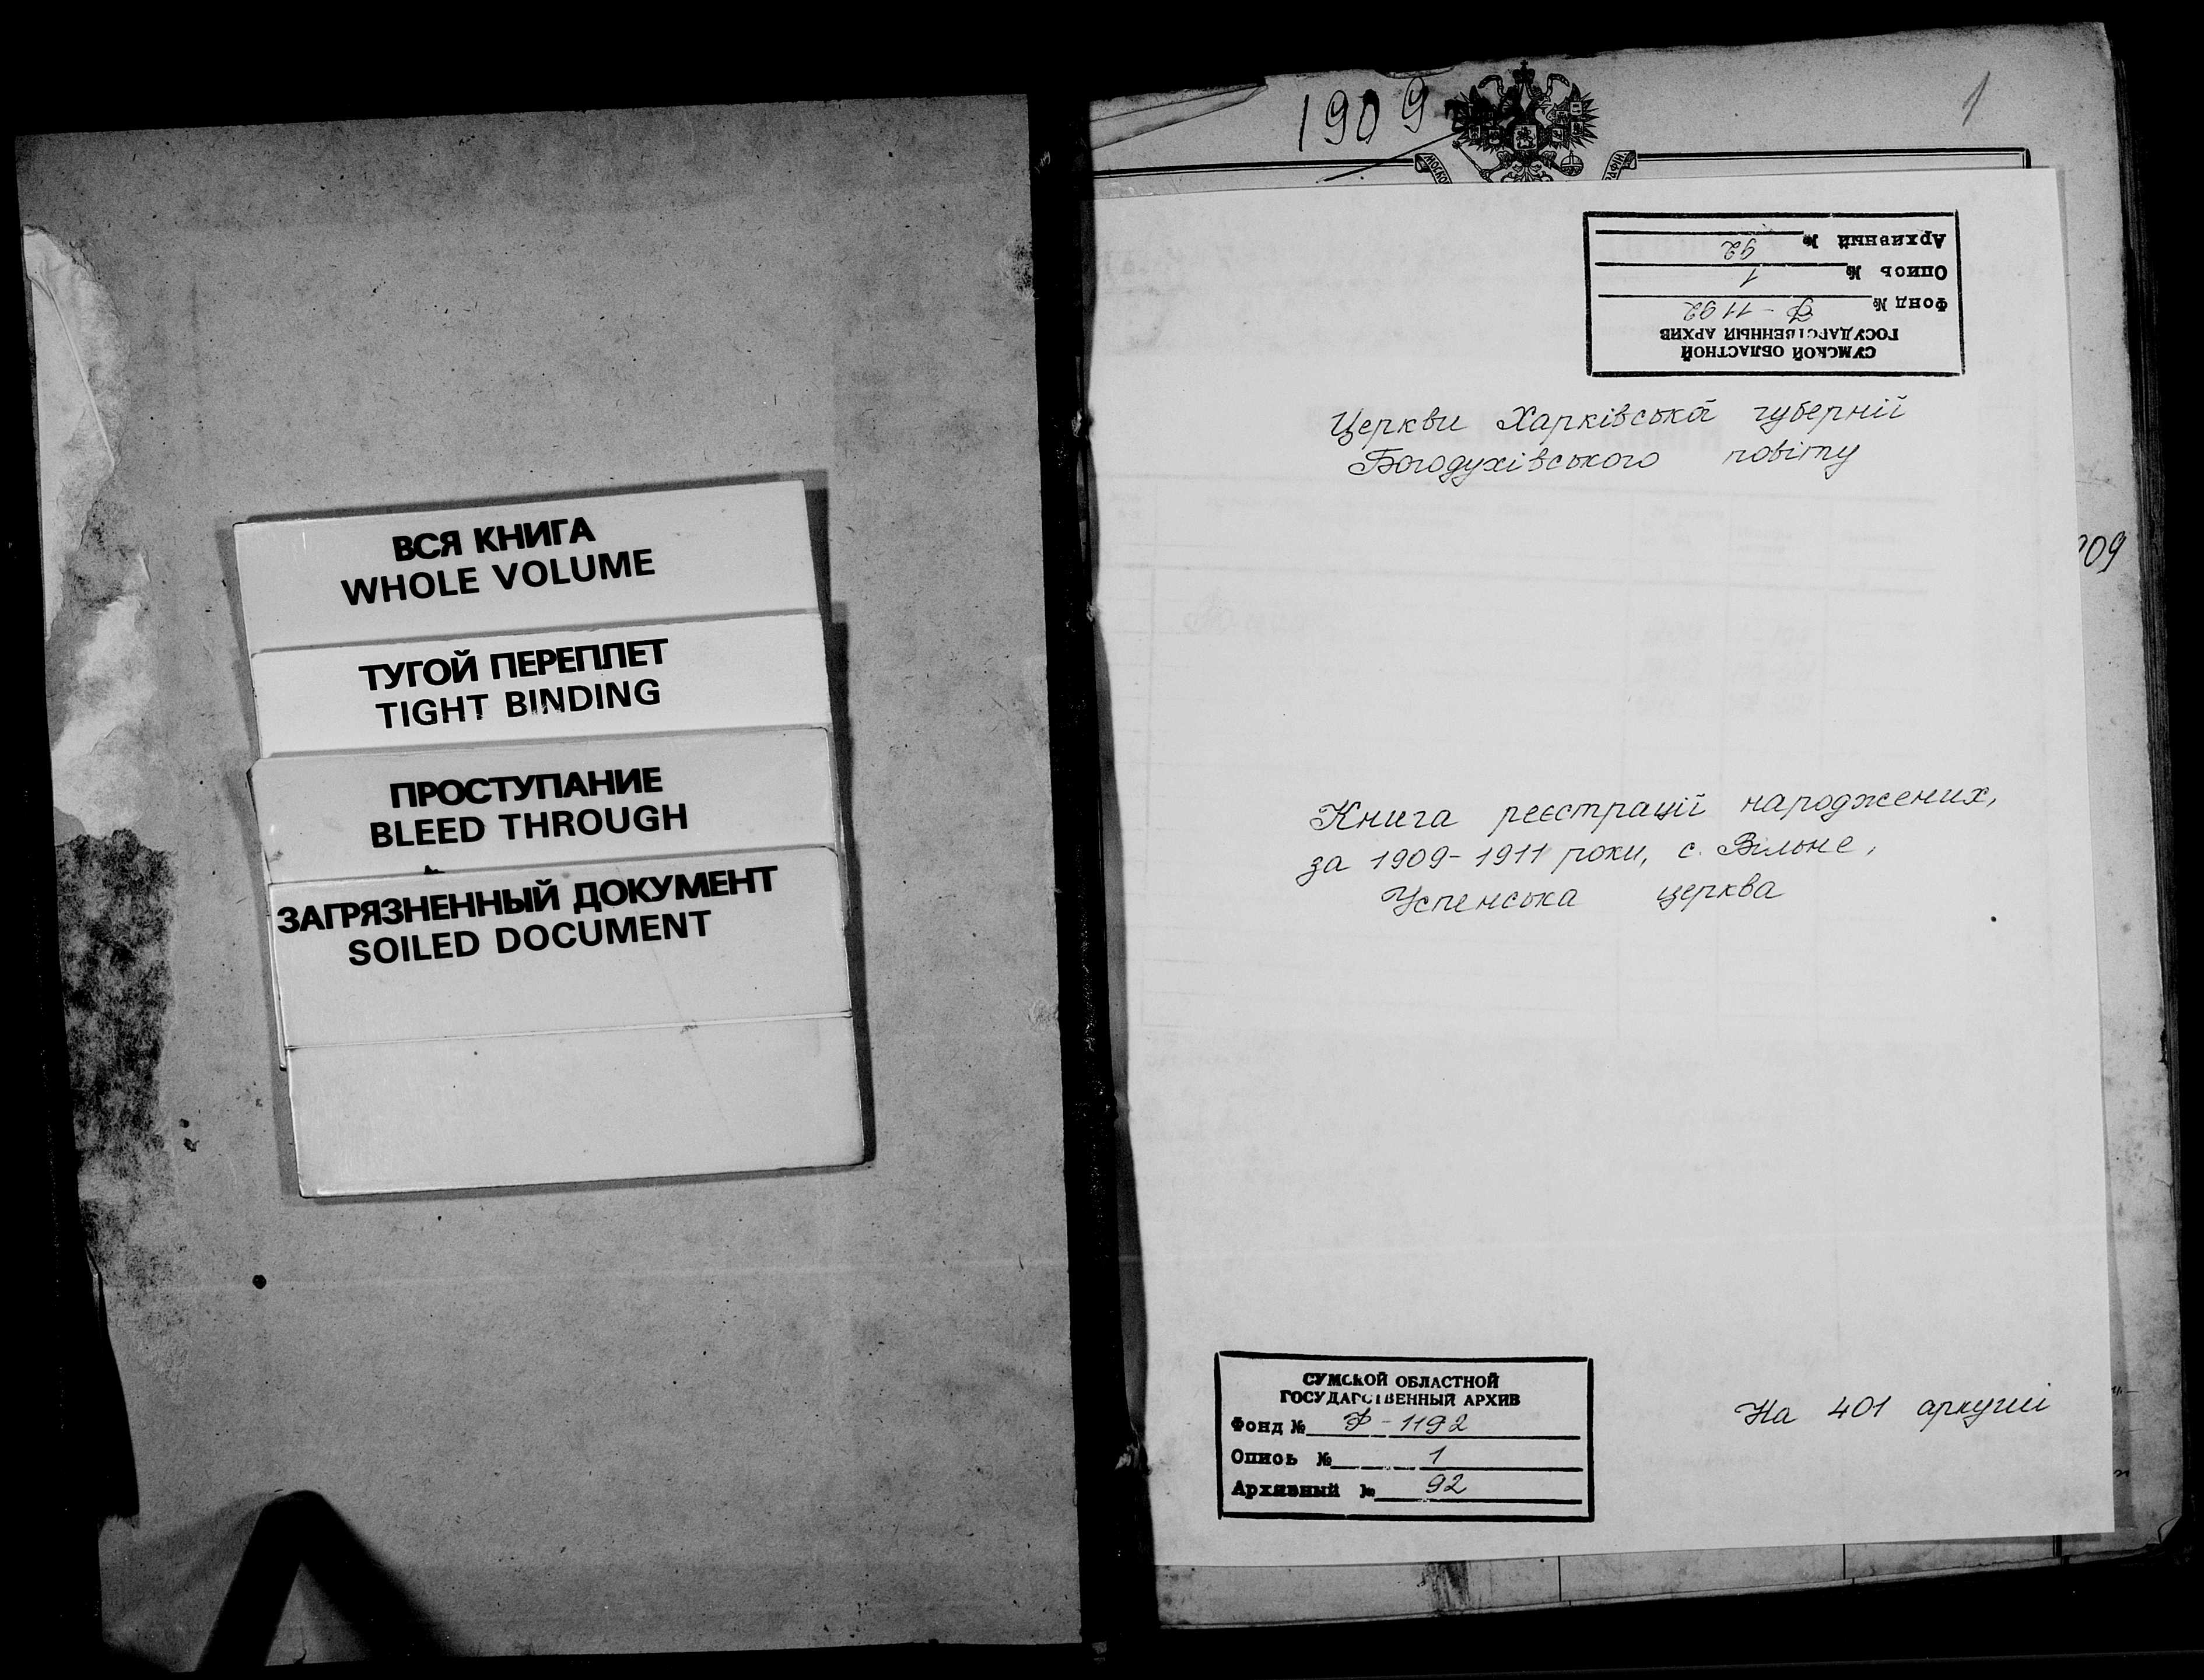 ВСЯ КНИГА
WHOLE VOLUME
ТУГОЙ ПЕРЕПЛЕТ
TIGHT BINDING
ПРОСТУПАНИЕ
BLEED THROUGH
ЗАГРЯЗНЕННЫЙ ДОКУМЕНТ
SOILED DOCUMENT
1909
1
СУМСКОЙ ОБЛАСТНОЙ
ГОСУДАРСТВЕННЫЙ АРХИВ
Фонд № Ф-1192
Опись № 1
Архивный № 92
Церкви Харківської губернії
Богодухівського повіту
909
Книга реєстрації народжених,
за 1909-1911 роки, с. Вільне,
Успенська церква
СУМСКОЙ ОБЛАСТНОЙ
ГОСУДАРСТВЕННЫЙ АРХИВ
Фонд № Ф-1192
Опись № 1
Архивный № 92
На 401 аркуші